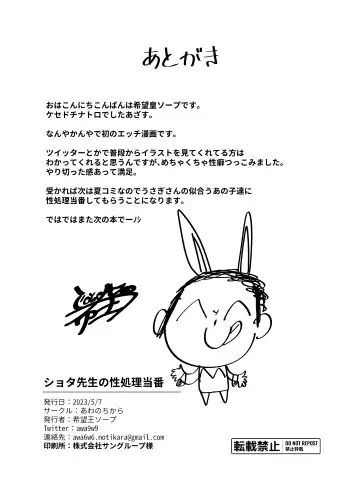 あとがき
おはこんにちこんばんは希望皇ソープです。
ケセドチナトロでしたあざす。
なんやかんやで初のエッチ漫画です。
ツイッターとかで普段からイラストを見てくれてる方は
わかってくれると思うんですが、めちゃくちゃ性癖つっこみました。
やり切った感あって満足。
受かれば次は夏コミなのでうさぎさんの似合うあの子達に
性処理当番してもらうことになります。
ではではまた次の本でーﾉｼ
ショタ先生の性処理当番
発行日：2023/5/7
サークル：あわのちから
発行者：希望王ソープ
Twitter：awa9w9
連絡先：awa6w6.notikara@gmail.com
印刷所：株式会社サングループ様
転載禁止
DO NOT REPOST
禁止转载